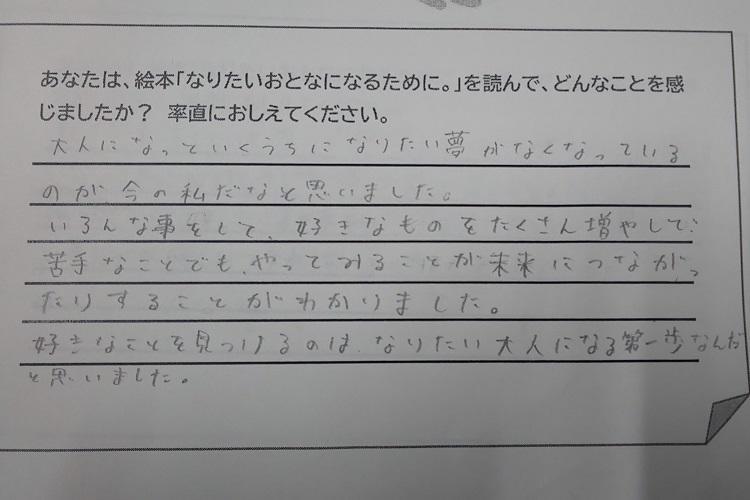 あなたは、絵本「なりたいおとなになるために。」を読んで、どんなことを感
じましたか？ 率直におしえてください。
大人になっていくうちになりたい夢がなくなっている
のが今の私だなと思いました。
いろんな事をして、好きなものをたくさん増やして、
苦手なことでも、やってみることが未来につながっ
たりすることがわかりました。
好きなことを見つけるのは、なりたい大人になる第一歩なんだ
と思いました。